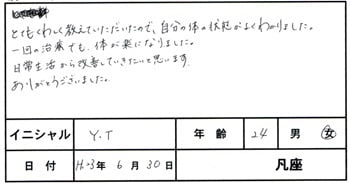 とてもくわしく教えていただいたので、自分の体の状態がよくわかりました。
一回の治療でも、体が楽になりました。
日常生活から改善していきたいと思います。
ありがとうございました。
イニシャル Y.T 年齢 24 男 女
日付 H.23年 6月 30日 凡座